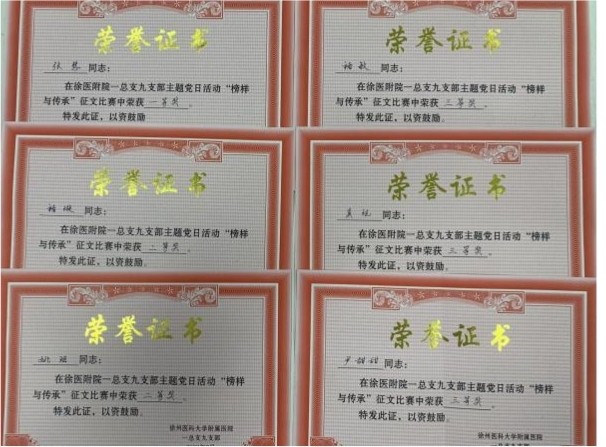 荣誉证书
同志：
在徐医附院一总支九支部主题党日活动“榜样
与传承”征文比赛中荣获 一等奖 。
特发此证，以资鼓励。
荣誉证书
同志：
在徐医附院一总支九支部主题党日活动“榜样
与传承”征文比赛中荣获 三等奖 。
特发此证，以资鼓励。
荣誉证书
同志：
在徐医附院一总支九支部主题党日活动“榜样
与传承”征文比赛中荣获 二等奖 。
特发此证，以资鼓励。
荣誉证书
同志：
在徐医附院一总支九支部主题党日活动“榜样
与传承”征文比赛中荣获 三等奖 。
特发此证，以资鼓励。
荣誉证书
同志：
在徐医附院一总支九支部主题党日活动“榜样
与传承”征文比赛中荣获 二等奖 。
特发此证，以资鼓励。
徐州医科大学附属医院
一总支九支部
荣誉证书
尹甜甜 同志：
在徐医附院一总支九支部主题党日活动“榜样
与传承”征文比赛中荣获 三等奖 。
特发此证，以资鼓励。
徐州医科大学附属医院
一总支九支部